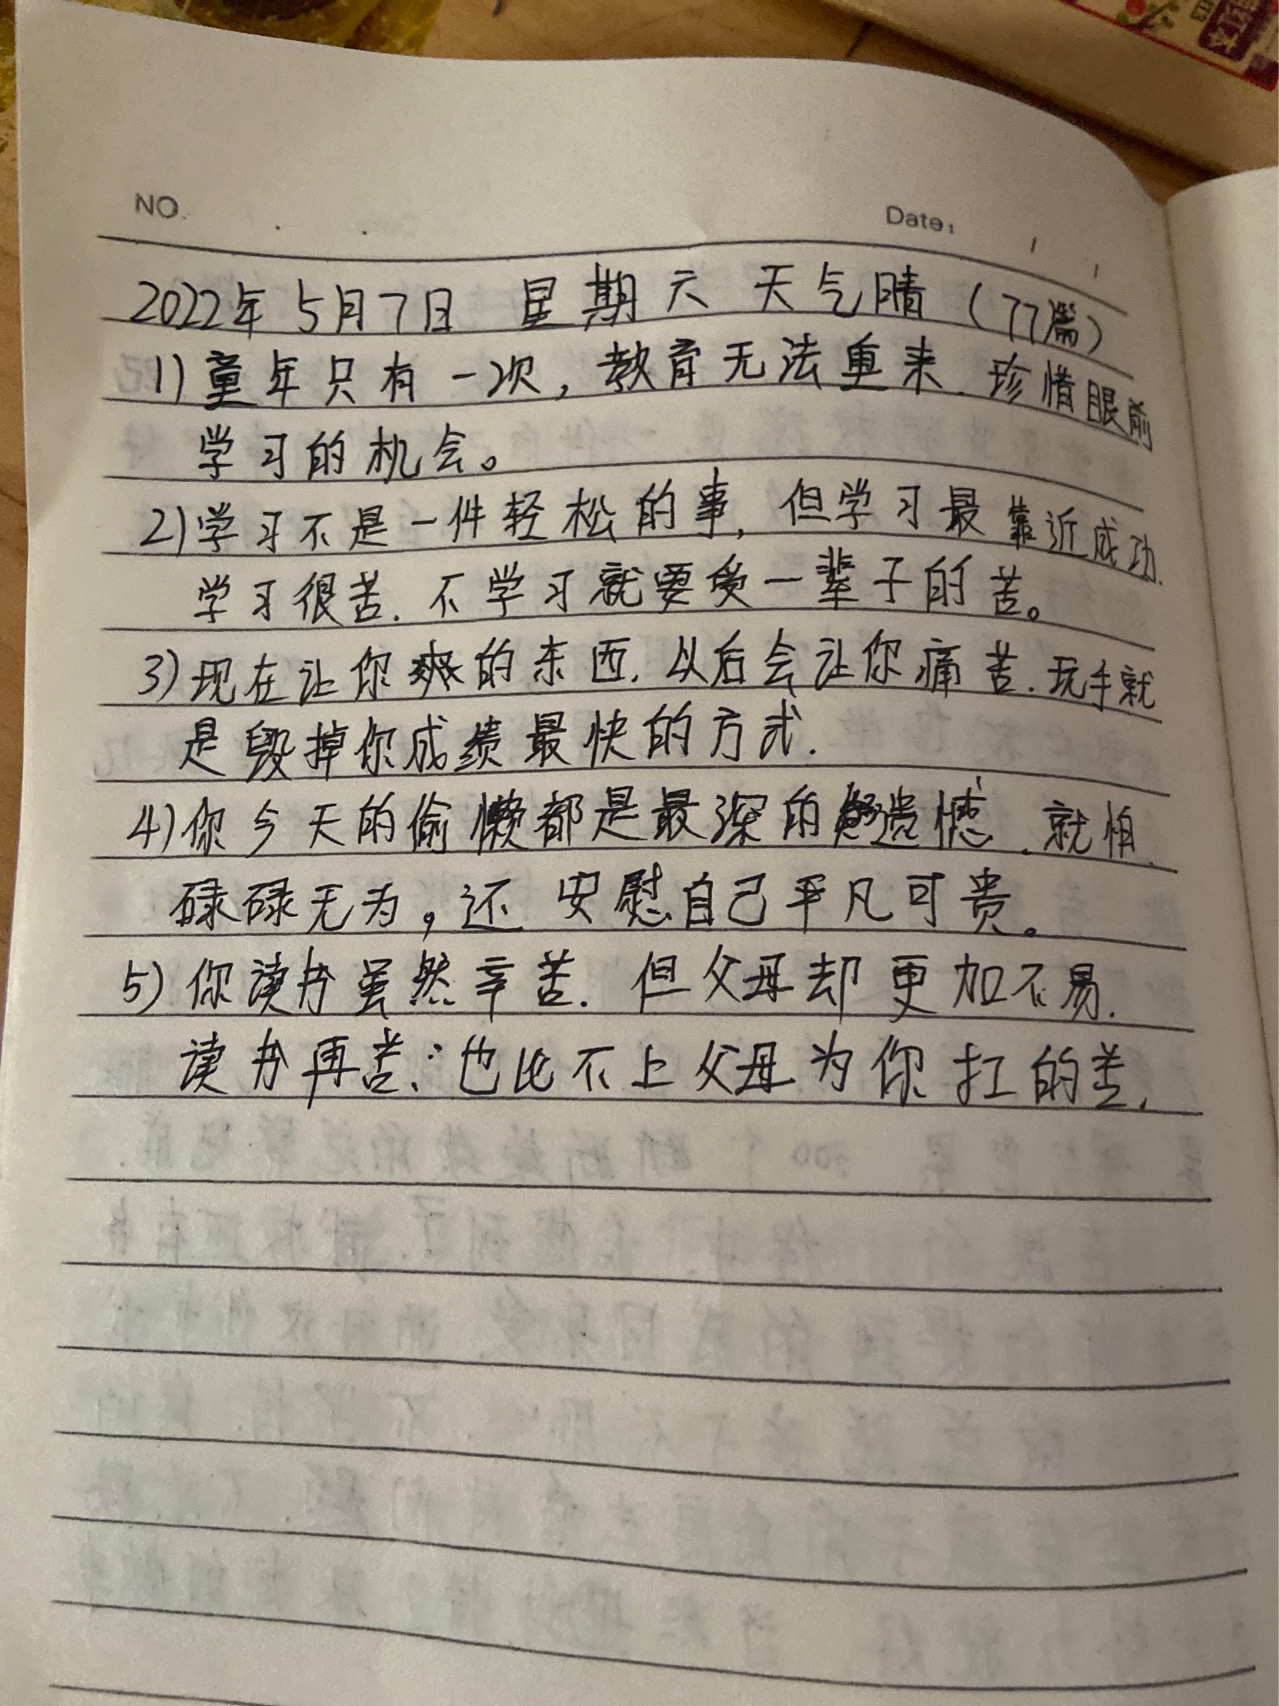 NO.
Date:
2022年5月7日 星期六 天气晴（77篇）
1)童年只有一次，教育无法重来.珍惜眼前
学习的机会。
2)学习不是一件轻松的事,但学习最靠近成功.
学习很苦.不学习就要受一辈子的苦。
3)现在让你爽的东西.以后会让你痛苦.玩手就
是毁掉你成绩最快的方式.
4)你今天的偷懒都是最深的遗憾.就怕.
碌碌无为,还安慰自己平凡可贵。
5)你读书虽然辛苦.但父母却更加不易.
读书再苦:也比不上父母为你扛的苦.